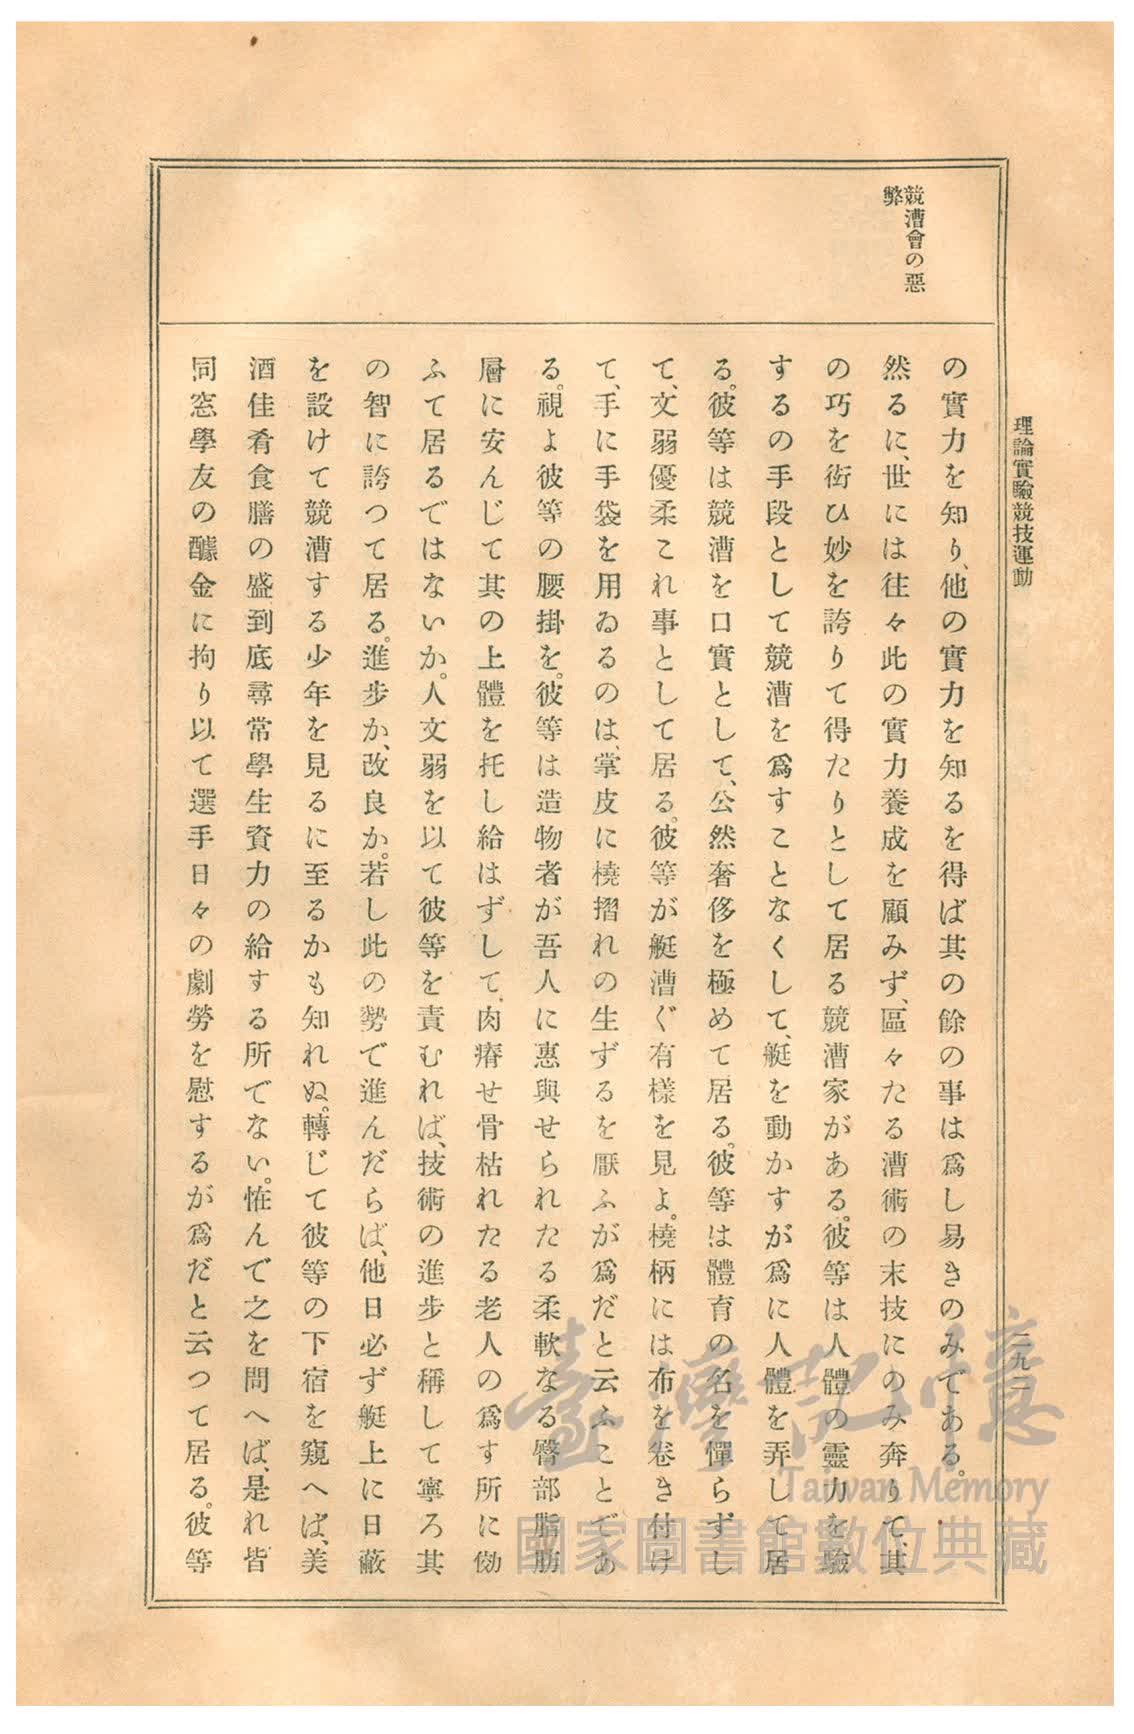 理論實驗競技運動
二九二
競漕會の惡
弊
の實力を知り、他の實力を知るを得ば其の餘の事は爲し易きのみである。
然るに、世には往々此の實力養成を顧みず、區々たる漕術の末技にのみ奔りて、其
の巧を衒ひ妙を誇りて得たりとして居る競漕家がある。彼等は人體の靈力を驗
するの手段として競漕を爲すことなくして、艇を動かすが爲に人體を弄して居
る。彼等は競漕を口實として、公然奢侈を極めて居る。彼等は體育の名を憚らずし
て、文弱優柔これ事として居る。彼等が艇漕ぐ有樣を見よ。橈柄には布を卷き付け
て、手に手袋を用ゐるのは、掌皮に橈摺れの生ずるを厭ふが爲だと云ふことであ
る。視よ彼等の腰掛を。彼等は造物者が吾人に惠與せられたる柔軟なる臀部脂肪
層に安んじて其の上體を托し給はずして、肉瘠せ骨枯れたる老人の爲す所に傚
ふて居るではないか。人文弱を以て彼等を責むれば、技術の進步と稱して寧ろ其
の智に誇つて居る。進步か、改良か。若し此の勢で進んだらば、他日必ず艇上に日蔽
を設けて競漕する少年を見るに至るかも知れぬ。轉じて彼等の下宿を窺へば、美
酒佳肴食膳の盛到底尋常學生資力の給する所でない。恠んで之を問へば、是れ皆
同窓學友の醵金に拘り以て選手日々の劇勞を慰するが爲だと云つて居る。彼等
臺灣記憶
Taiwan Memory
國家圖書館數位典藏